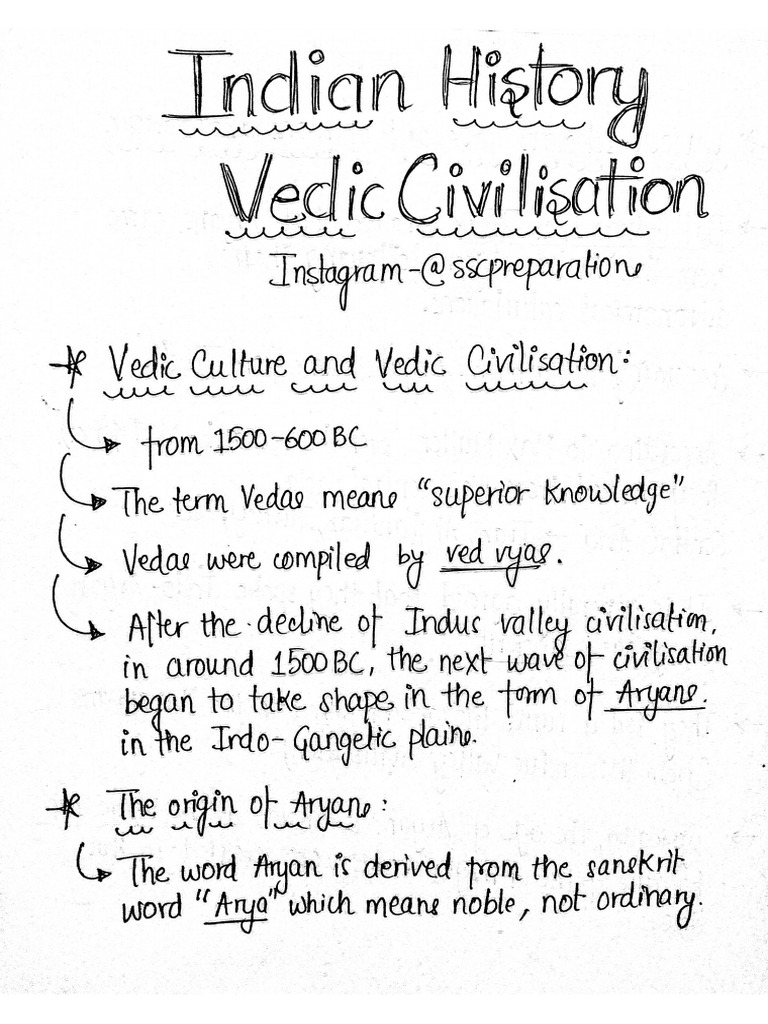 Indian History
Vedic Civilisation
Instagram-@sscpreparations
* Vedic Culture and Vedic Civilisation:
from 1500-600 BC
The term Vedas means "superior knowledge"
Vedas were compiled by ved vyas.
After the decline of Indus valley civilisation,
in around 1500 BC, the next wave of civilisation
began to take shape in the form of Aryans.
in the Indo-Gangetic plains.
* The origin of Aryans:
The word Aryan is derived from the sanskrit
word "Arya" which means noble, not ordinary.